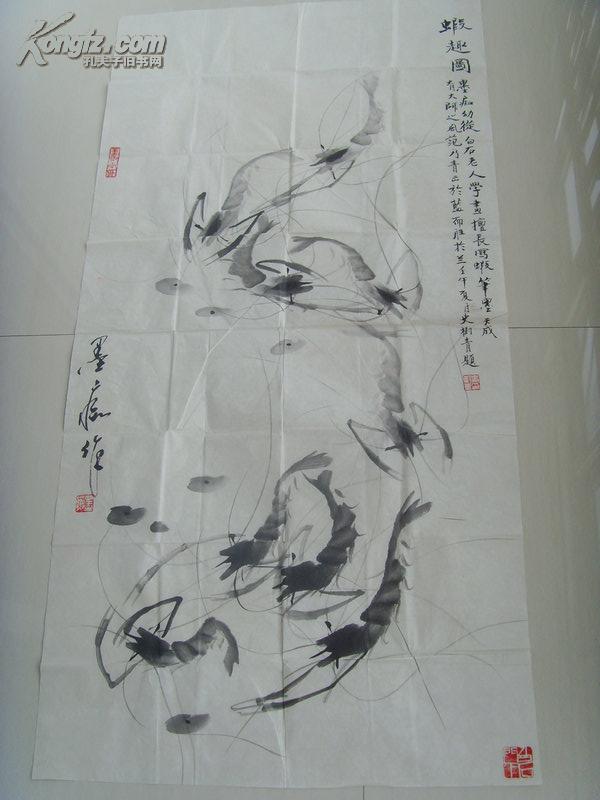 Kongfz.com
孔夫子旧书网
蝦趣圖
墨痴幼從白石老人學畫擅長寫蝦筆墨天成
有大師之風范乃青出於藍而胜於兰壬午夏月史樹青題
墨痴作